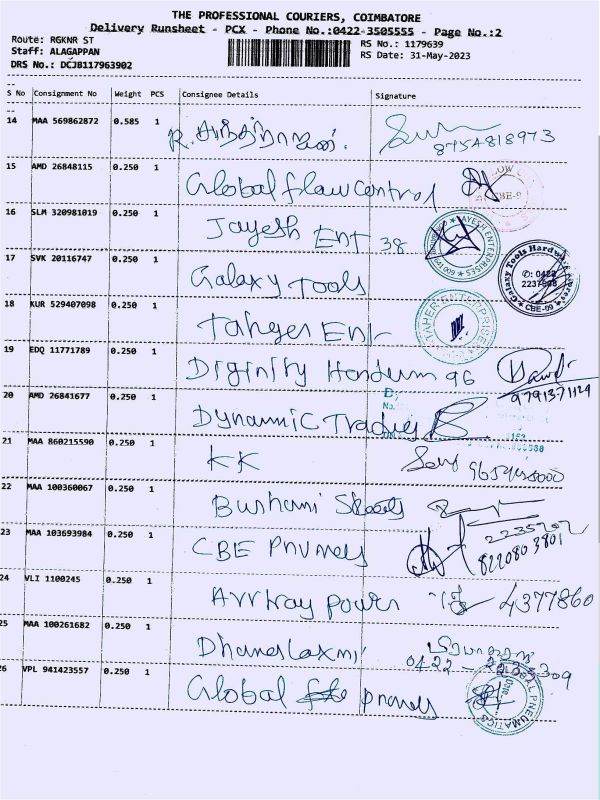 THE PROFESSIONAL COURIERS, COIMBATORE
Delivery Runsheet - PCX - Phone No.:0422-3505555 - Page No.:2
Route: RGKNR ST
RS No.: 1179639
Staff: ALAGAPPAN
RS Date: 31-May-2023
DRS No.: DCJB117963902
S No Consignment No Weight PCS Consignee Details Signature
14 MAA 569862872 0.585 1
8754818973
15 AMD 26848115 0.250 1
Global flawcontrol
CBE-9
16 SLM 320981019 0.250 1
Jayesh Ent 38
17 SVK 20116747 0.250 1
Galaxy Tools
Galaxy Tools Hardware
✆: 0422
CBE-09
18 KUR 529407098 0.250 1
Taheer Ent
TAHER ENTERPRISES
19 EDQ 11771789 0.250 1
96
9791371124
20 AMD 26841677 0.250 1
Dynamic
21 MAA 860215590 0.250 1
KK
22 MAA 100360067 0.250 1
23 MAA 103693984 0.250 1
CBE
2235202
8220803801
24 VLI 1100245 0.250 1
Power 4377860
25 MAA 100261682 0.250 1
Dhanalaxmi
26 VPL 941423557 0.250 1
Global
GLOBAL PNEUMATICS